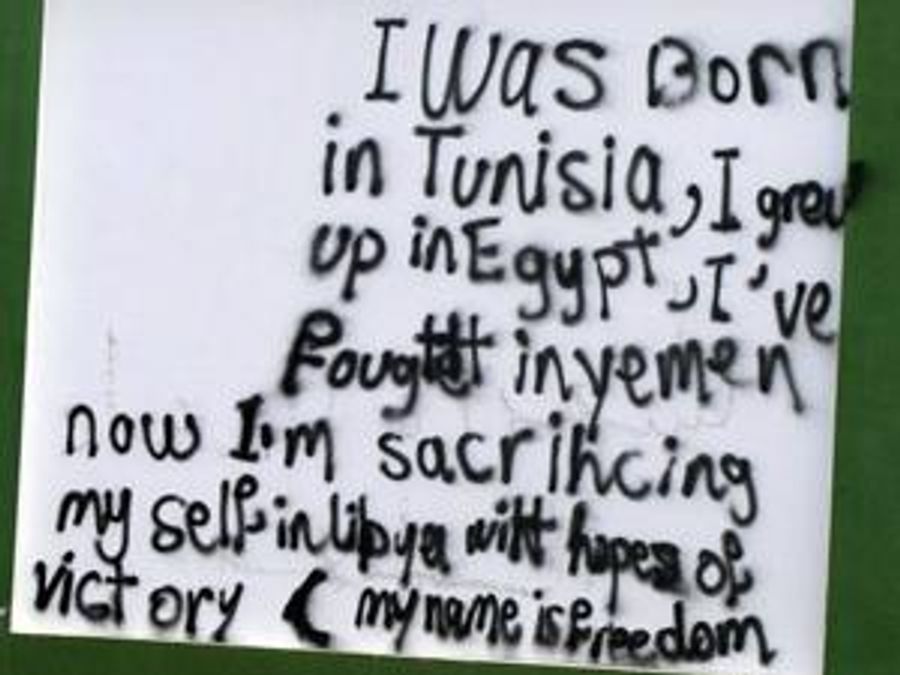 I Was Born
in Tunisia, I grew
up in Egypt, I've
Fought in yemen
now I'm sacrificing
my self in libya with hopes of
victory ( my name is freedom